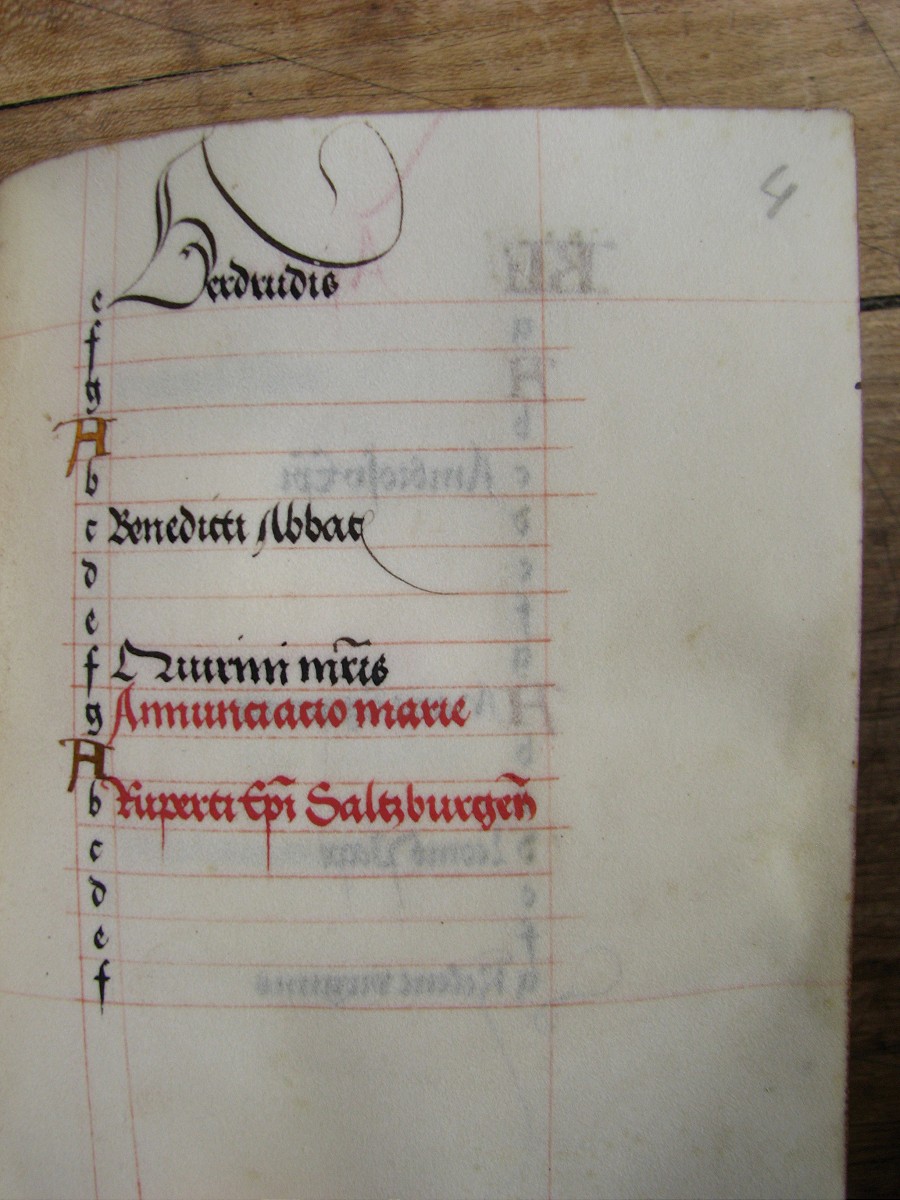 4
e Gerdrudis
f
g
A
b
c Benedicti Abbat
d
e
f Quirini mr̄is
g Annunciacio marie
A
b Ruperti Ep̄i Saltzburgen̄
c
d
e
f